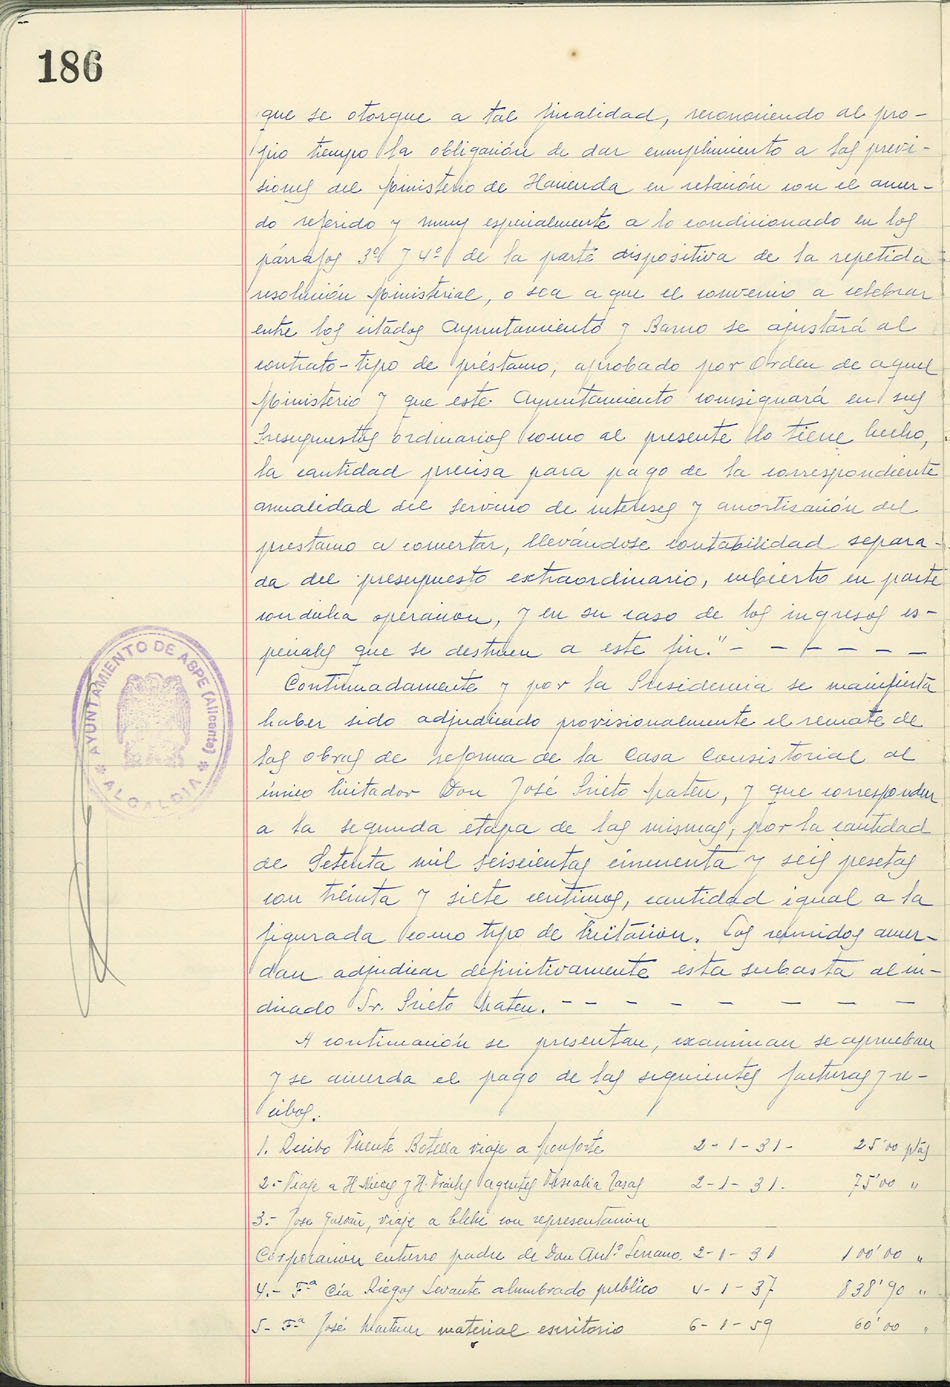 186
que se otorgue a tal finalidad, reconociendo al pro-
pio tiempo la obligación de dar cumplimiento a las previ-
siones del Ministerio de Hacienda en relación con el acuer-
do referido y muy especialmente a lo condicionado en los
párrafos 3º y 4º de la parte dispositiva de la repetida
resolución Ministerial, o sea a que el convenio a celebrar
entre los citados Ayuntamiento y Banco se ajustará al
contrato-tipo de préstamo, aprobado por Orden de aquel
Ministerio y que este Ayuntamiento consignará en sus
Presupuestos ordinarios como al presente lo tiene hecho,
la cantidad precisa para pago de la correspondiente
anualidad del servicio de intereses y amortización del
prestamo a concertar, llevándose contabilidad separa-
da del presupuesto extraordinario, cubierto en parte
con dicha operacion, y en su caso de los ingresos es-
peciales que se destinen a este fin." - - - - - -
Continuadamente y por la Presidencia se manifiesta
haber sido adjudicado provisionalmente el remate de
las obras de reforma de la Casa Consistorial al
único licitador Don José Prieto Mateu, y que corresponden
a la segunda etapa de las mismas, por la cantidad
de Setenta mil seiscientas cincuenta y seis pesetas
con treinta y siete centimos, cantidad igual a la
figurada como tipo de licitación. Los reunidos acuer-
dan adjudicar definitivamente esta subasta al in-
dicado Sr. Prieto Mateu. - - - - - - - -
A continuación se presentan, examinan se aprueban
y se acuerda el pago de las siguientes facturas y re-
cibos:
1. Recibo Vicente Botella viaje a Monforte 2-1-31- 25'00 ptas
2.- Viaje a H. Nieves y H. Frailes agentes Fiscalia Tasas 2-1-31. 75'00 "
3.- Jose , viaje a Elche con representacion
Corporacion entierro padre de Don Antº Serrano. 2-1-31 100'00 "
4.- Fª Cía Riegos Levante alumbrado publico 4-1-37 838'90 "
5- Fª José Martinez material escritorio 6-1-59 60'00 "
AYUNTAMIENTO DE ASPE (Alicante)
* ALCALDIA *